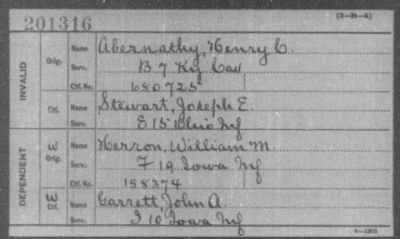 201316
(3-35-4)
INVALID
Orig.
Name Abernathy, Henry C.
Serv. B 7 Ky Cav
Ctf. No. 680725
Ctf.
Name Stewart, Joseph E.
Serv. E 15 Ohio Inf
DEPENDENT
W Orig.
Name Herron, William M.
Serv. F 19 Iowa Inf
Ctf. No. 158374
W Ctf.
Name Garrett, John A.
Serv. I 10 Iowa Inf